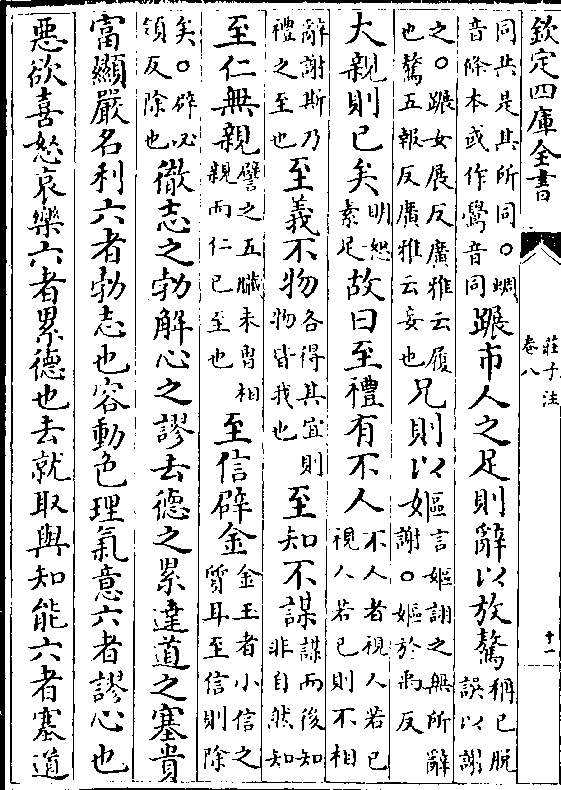 欽定四庫全書
莊子注
卷八
十一
同共是其所同○蜩
音條本或作鸒音同
蹍市人之足則辭以放驁
稱已脱
誤以謝
之○蹍女展反廣雅云履
也驁五報反廣雅云妄也
兄則以嫗
言嫗詡之無所辭
謝○嫗於禹反
大親則已矣
明恕
素足
故曰至禮有不人
不人者視人若己
視人若己則不相
辭謝斯乃
禮之至也
至義不物
各得其宜則
物皆我也
至知不謀
謀而後知
非自然知
至仁無親
譬之五臟未曾相
親而仁已至也
至信辟金
金玉者小信之
質耳至信則除
矣○辟必
領反除也
徹志之勃解心之謬去德之累達道之塞貴
富顯嚴名利六者勃志也容動色理氣意六者謬心也
惡欲喜怒哀樂六者累德也去就取與知能六者塞道